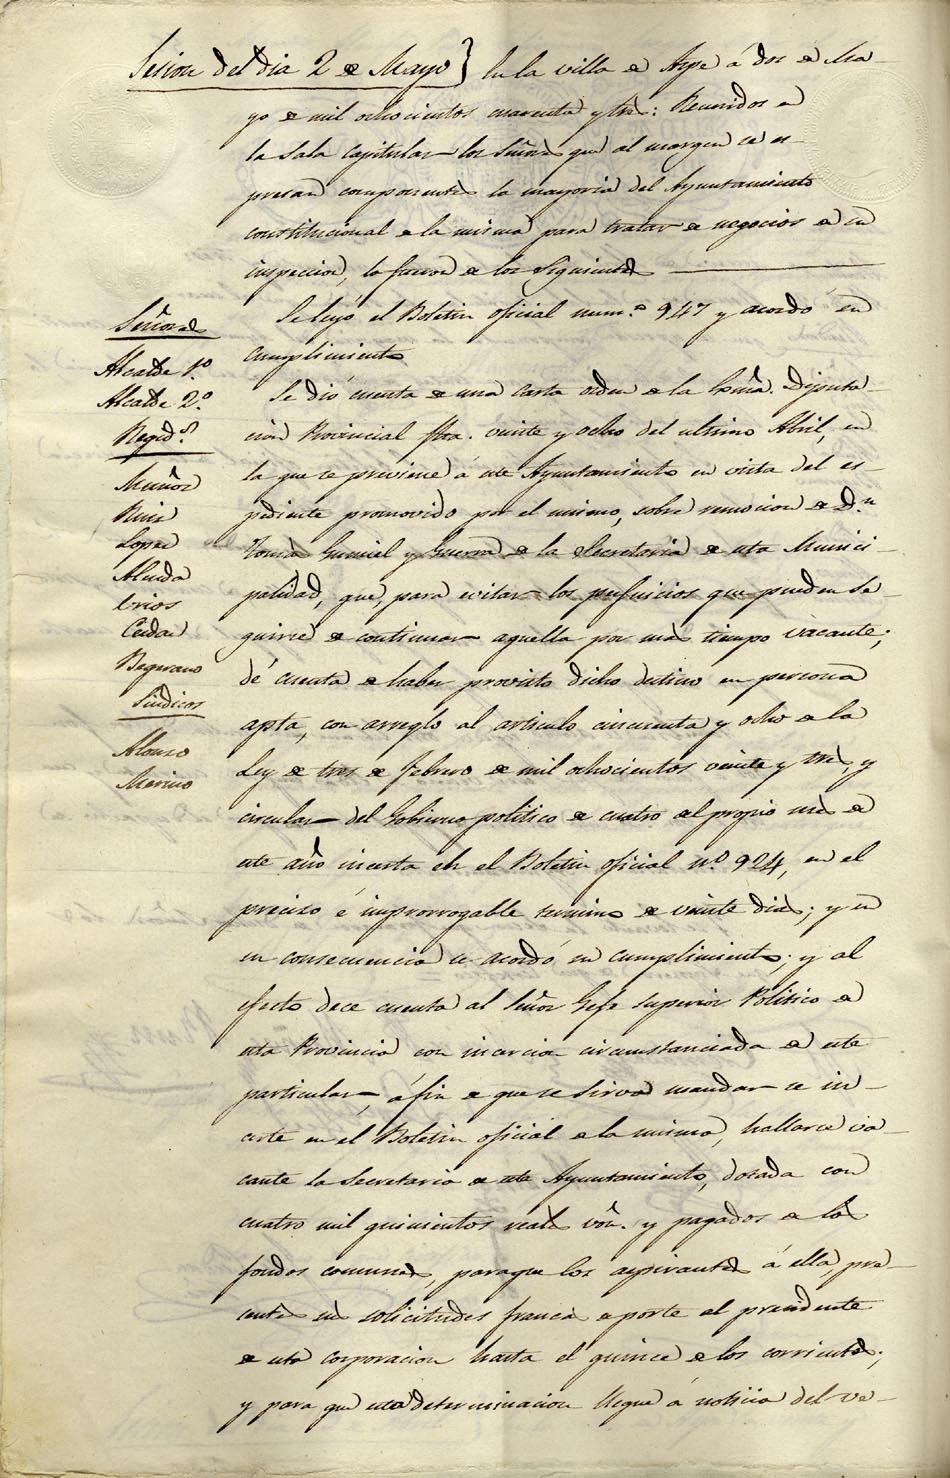 Sesion del dia 2 de Mayo} En la villa de Aspe á dos de Ma-
yo de mil ochocientos cuarenta y tres: Reunidos en
la Sala Capitular los Señores que al margen se es-
presan componentes la mayoria del Ayuntamiento
constitucional de la misma para tratar de negocios de su
inspeccion, lo fueron de los siguientes
Se leyó el Boletin oficial num.º 947 y acordó su
cumplimiento
Se dió cuenta de una carta orden de la Exma. Diputa-
cion Provincial fha. veinte y ocho del ultimo Abril, en
la que se previene á este Ayuntamiento en vista del es-
pediente promovido por el mismo, sobre remocion de D.n
Tomas Gumiel y Guerra de la Secretaria de esta Munici-
palidad, que, para evitar los perjuicios que pueden se-
guirse de continuar aquella por mas tiempo vacante;
dé cuenta de haber provisto dicho destino en persona
apta, con arreglo al articulo cincuenta y ocho de la
Ley de tres de febrero de mil ochocientos veinte y tres, y
circular del Gobierno politico de cuatro del propio mes de
este año incerta en el Boletin oficial n.º 924, en el
preciso é improrrogable termino de veinte dias; y en
su consecuencia se acordó su cumplimiento; y al
efecto dece cuenta al Señor Gefe superior Politico de
esta Provincia con incercion circunstanciada de este
particular, á fin de que se sirva mandar se in-
certe en el Boletin oficial de la misma, hallarce va-
cante la Secretaria de este Ayuntamiento, dotada con
cuatro mil quinientos reales von. y pagados de los
fondos comunes, para que los aspirantes á ella, pre-
centen sus solicitudes francas de porte al presidente
de esta corporacion hasta el quince de los corrientes;
y para que esta determinacion llegue á noticia del ve-
Señores
Alcalde 1.º
Alcalde 2.º
Regid.s
Muñoz
Ruiz
Lopez
Almida
Erios
Cerdan
Bejerano
Sindicos
Alonso
Merino